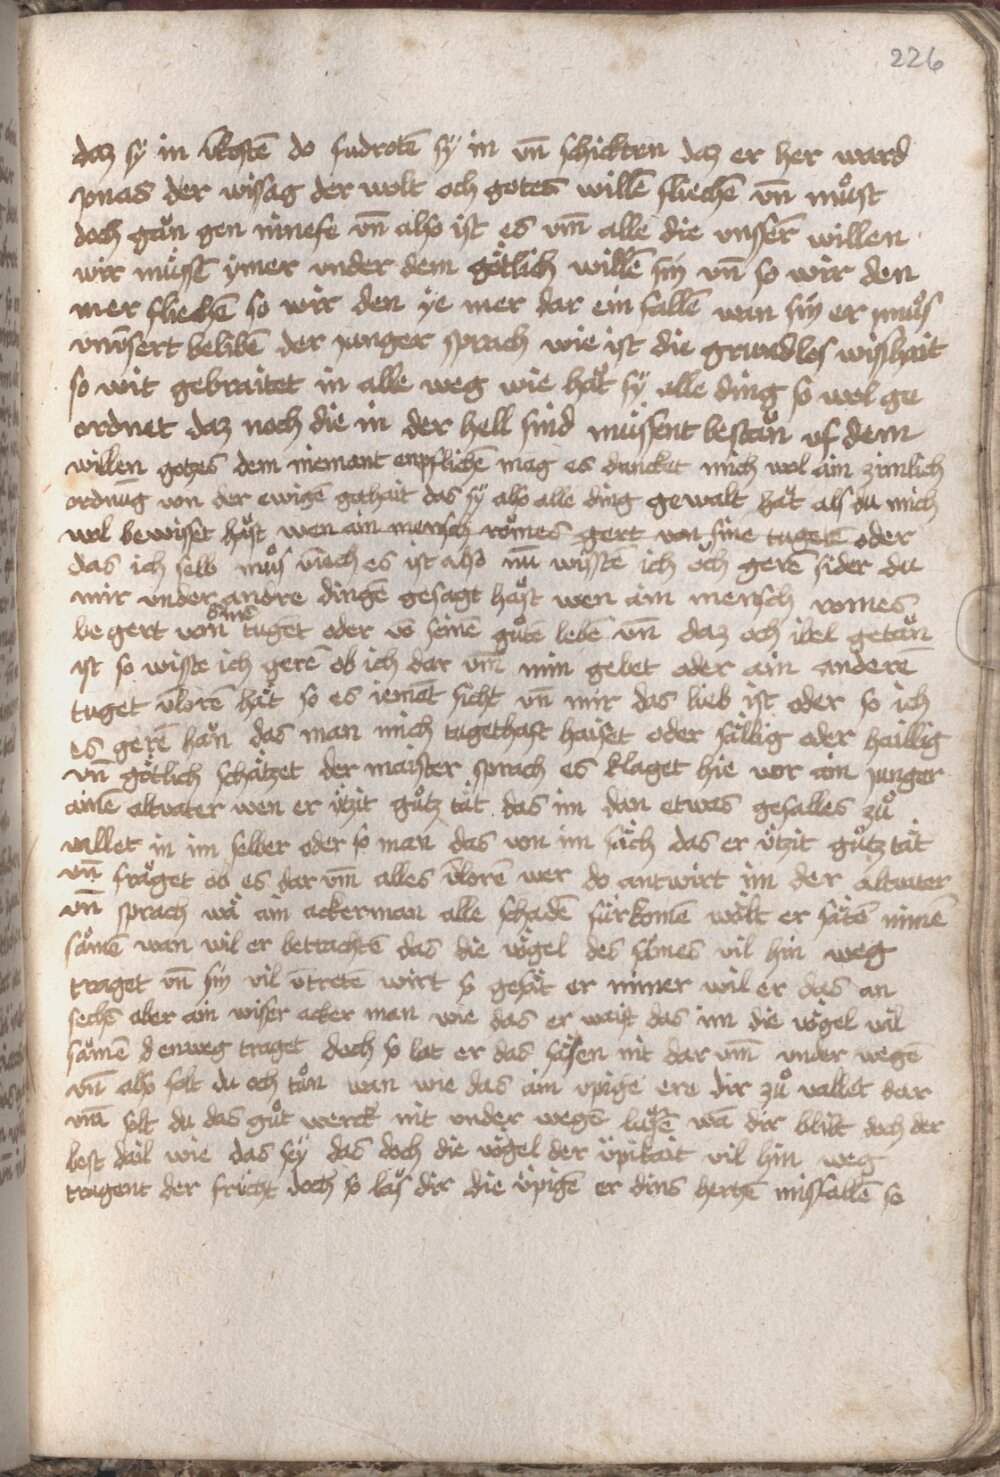 226
daz sÿ in v̄kostē do fudrotē sÿ in vn̄ schickten daz er her ward
jonas der wissag der wolt och gotes willē fliechē vn̄ mu̓st
doch gan gen ninefe vn̄ also ist es vm̄ alle die vnsser willen
wir mu̓ssē ÿmer vnder dem götlich willē sin vn̄ so wir den
mer fliechē so wir den ÿe mer dar ein fallē wan sin er muͦs
vnūsert belibē der junger sprach wie ist die grundlos wisshait
so wit gebraitet in alle weg wie hät sÿ alle ding so wol ge
ordnet daz noch die in der hell sind müssent bestän vf dem
willen gotzes dem niemant enpfliehē mag es duncket mich wol ain zimlich
ordnūg von der ewigē gothait das sÿ also alle ding gewalt hät als du mich
wol bewisset häst wen ain mensch römes gert von sine tugetē oder
das ich selb muͦs v̄iech es ist also nū wisstē ich och gerē sider du
mir vnder andre dingē gesagt häst wen ain mensch romes
be gert vom sinē tuget oder vō seinē guͦtē lebē vn̄ daz och itel getän
ist so wiste ich gerē ob ich dar vm̄ min gebet oder ain anderē
tuget v̄lorē hät so es iemāt sicht vn̄ mir das lieb ist oder so ich
es gerē hän das man mich tugethaft haiset oder sällig oder haillig
vn̄ götlich schätzet der maister sprach es klaget hie vor ain junger
ainē altvater wen er ützit guͦtz tät das im dan etwas gefalles zuͦ
vallet in im selber oder so man das von im säch das er ützit guͦtz tät
vn̄ fräget ob es dar vm̄ alles v̄lorē wer do antwirt im der altvater
vn̄ sprach wä ain ackerman alle schadē fürkomē wölt er sätē nimē
sämē wan wil er betrachtē das die vögel des sämes vil hin weg
traget vn̄ sin vil v̄tretē wirt so gesät er nimer wil er das an
sechē aber ain wiser acker man wie das er waist das im die vögel vil
sämē denweg traget doch so lat er das säsen nit dar vm̄ vnder wegē
vn̄ also solt du och tuͦn wan wie das ain vpige ere dir zuͦ vallet dar
vm̄ solt du das guͦt werck nit vnder wegē lasē wā dir blibt doch der
best dail wie das seÿ das doch die vögel der üpikait vil hin weg
tragent der frücht doch so las dir die üpigē er dins hertzē missfallē so